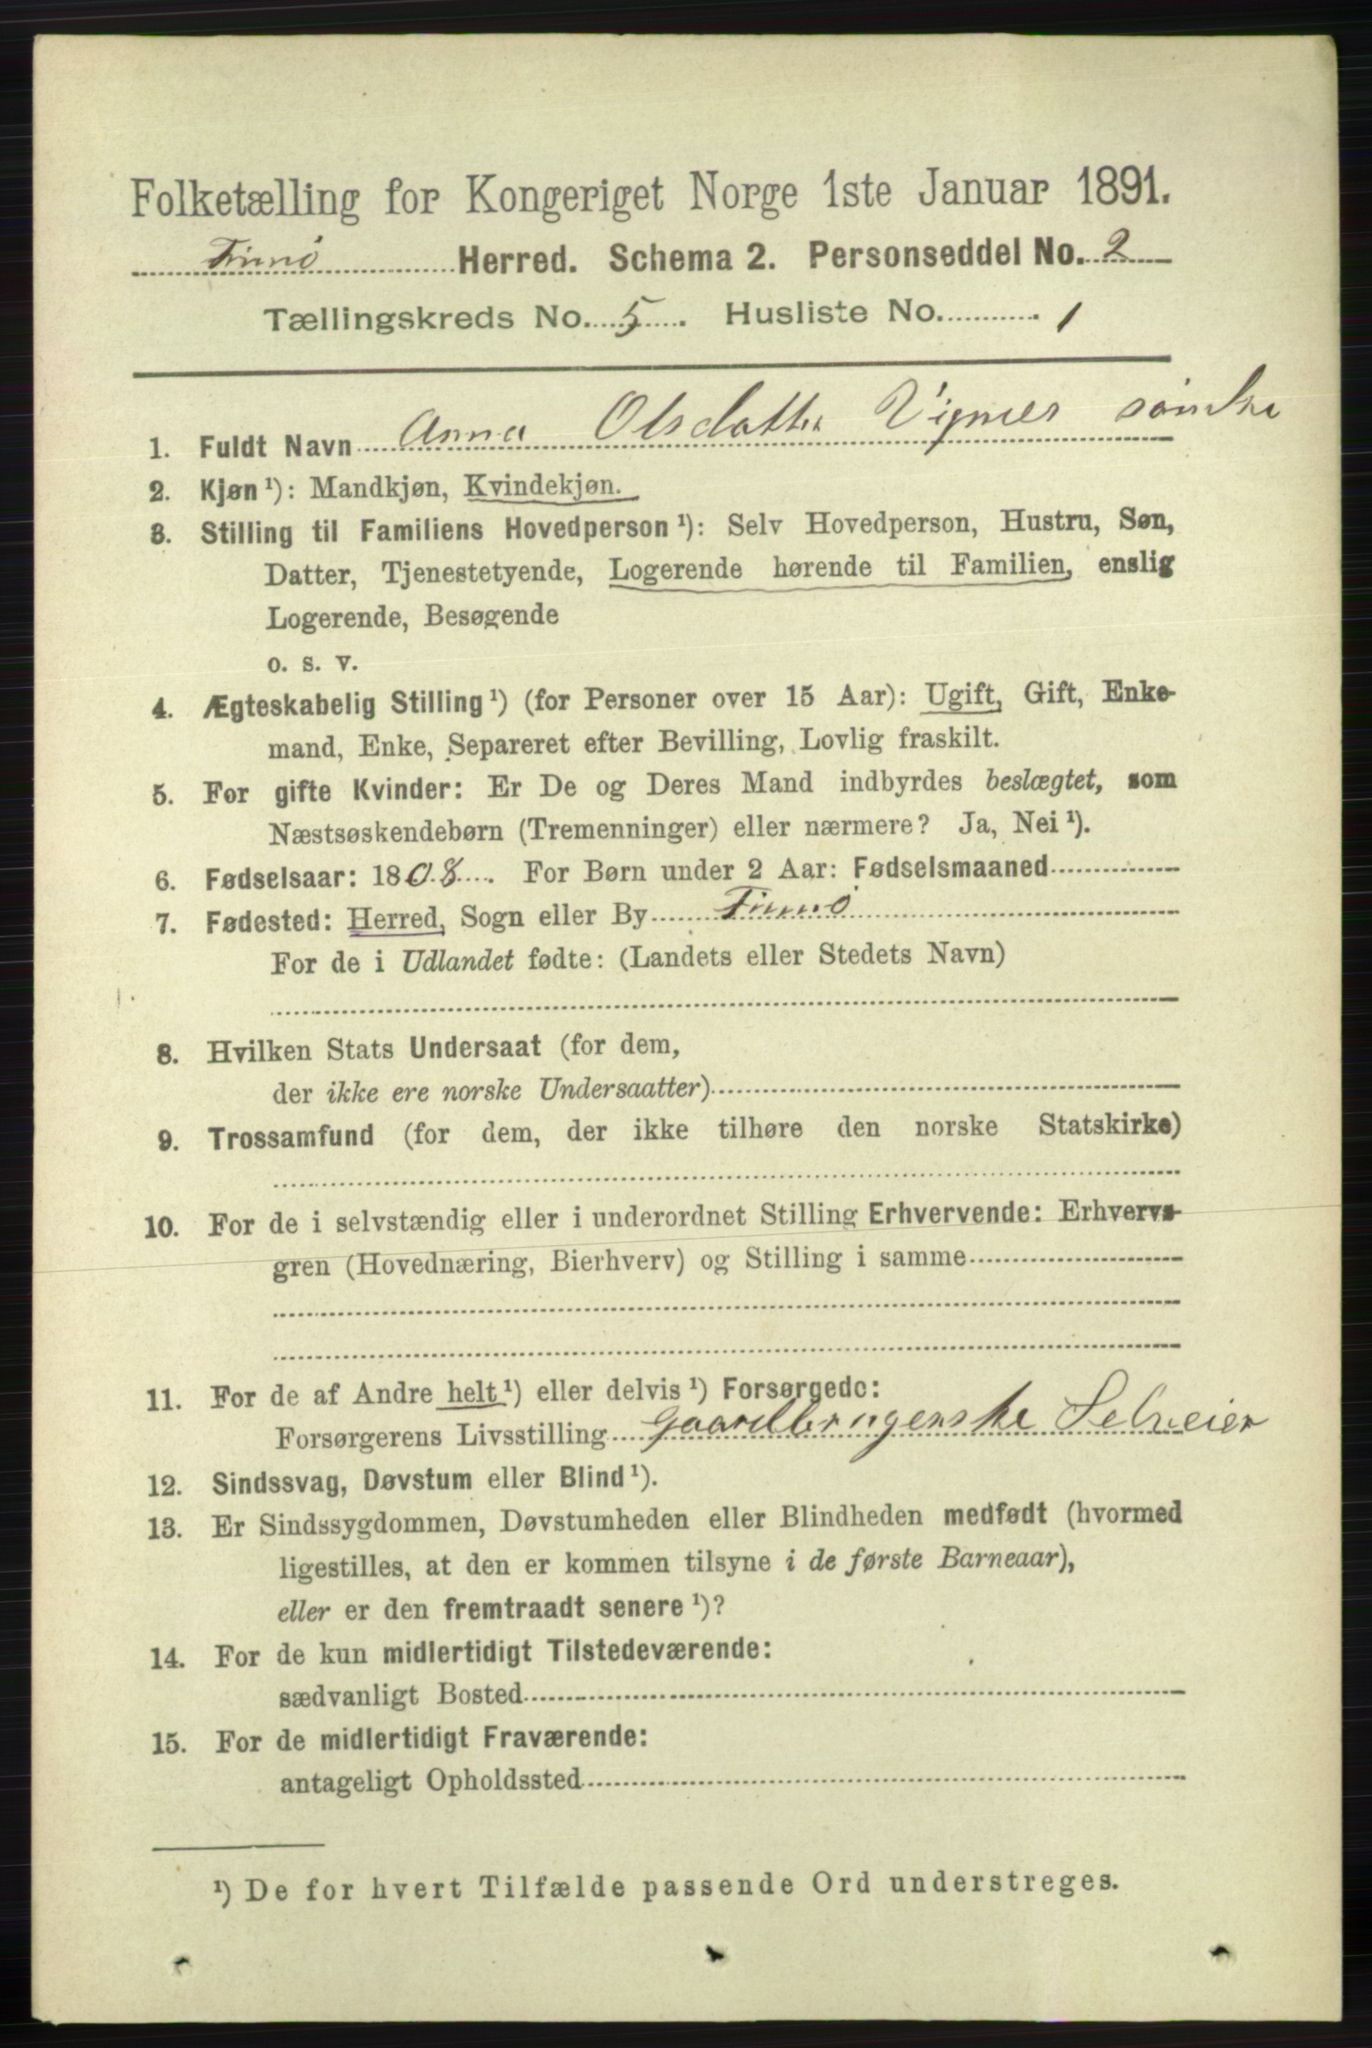 Folketælling for Kongeriget Norge 1ste Januar 1891.
Finnø Herred. Schema 2. Personseddel No. 2
Tællingskreds No. 5. Husliste No. 1
1. Fuldt Navn Anna Olsdatter Vignes
2. Kjøn ¹): Mandkjøn, Kvindekjøn.
3. Stilling til Familiens Hovedperson ¹): Selv Hovedperson, Hustru, Søn,
Datter, Tjenestetyende, Logerende hørende til Familien, enslig
Logerende, Besøgende
o. s. v.
4. Ægteskabelig Stilling ¹) (for Personer over 15 Aar): Ugift, Gift, Enke-
mand, Enke, Separeret efter Bevilling, Lovlig fraskilt.
5. For gifte Kvinder: Er De og Deres Mand indbyrdes beslægtet, som
Næstsøskendebørn (Tremenninger) eller nærmere? Ja, Nei ¹).
6. Fødselsaar: 1808. For Børn under 2 Aar: Fødselsmaaned
7. Fødested: Herred, Sogn eller By Finnø
For de i Udlandet fødte: (Landets eller Stedets Navn)
8. Hvilken Stats Undersaat (for dem,
der ikke ere norske Undersaatter)
9. Trossamfund (for dem, der ikke tilhøre den norske Statskirke)
10. For de i selvstændig eller i underordnet Stilling Erhvervende: Erhvervs-
gren (Hovednæring, Bierhverv) og Stilling i samme
11. For de af Andre helt ¹) eller delvis ¹) Forsørgede:
Forsørgerens Livsstilling gaardbrugerske Selveier
12. Sindssvag, Døvstum eller Blind ¹).
13. Er Sindssygdommen, Døvstumheden eller Blindheden medfødt (hvormed
ligestilles, at den er kommen tilsyne i de første Barneaar),
eller er den fremtraadt senere ¹)?
14. For de kun midlertidigt Tilstedeværende:
sædvanligt Bosted
15. For de midlertidigt Fraværende:
antageligt Opholdssted
¹) De for hvert Tilfælde passende Ord understreges.